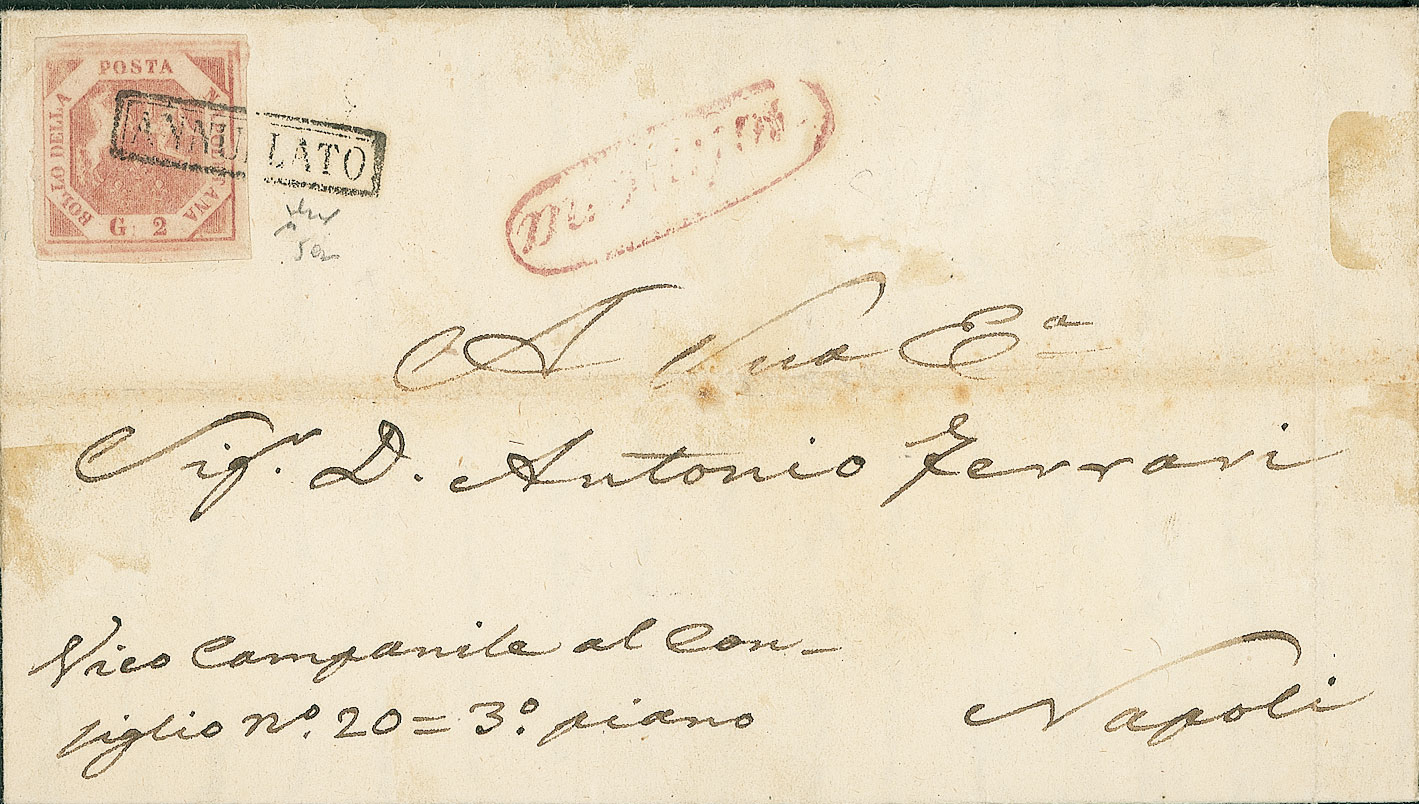 POSTA
BOLLO DELLA
G. 2
ANNULLATO
A Sua E.a
Sig.r D. Antonio Ferrari
Vico Campanile al Con-
siglio nº. 20 = 3º. piano
Napoli